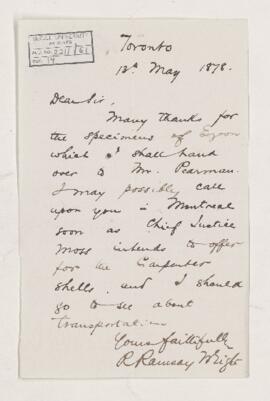 Toronto
12th May 1878.
Dear Sir,
Many thanks for
the specimens of Eozoon
which I shall hand
over to Mr. Pearman.
I may possibly call
upon you in Montreal
soon as Chief Justice
Moss intends to offer
for the Carpenter
shells, and I should
go to see about
transportation
Yours faithfully
R. Ramsay Wright